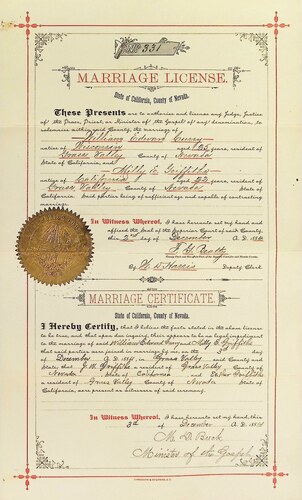 331
MARRIAGE LICENSE.
State of California, County of Nevada.
These Presents are to authorize and license any Judge, Justice
of the Peace, Priest, or Minister of the Gospel of any denomination, to
solemnize within said County, the marriage of
William Edward
native of Wisconsin aged 25 years, resident of
Grass Valley County of Nevada
State of California, and
Milly E Griffiths
native of California aged 22 years, resident of
Grass Valley County of Nevada State of
California. Said parties being of sufficient age and capable of contracting
marriage.
In Witness Whereof, I have hereunto set my hand and
affixed the Seal of the Superior Court of said County,
this 2nd day of December A. D. 1884
By H. D. Harris Deputy Clerk.
MARRIAGE CERTIFICATE.
State of California, County of Nevada.
I Hereby Certify, that I believe the facts stated in the above license
to be true, and that upon due inquiry, there appears to be no legal impediment
to the marriage of said William Edward and Milly E. Griffiths
that said parties were joined in marriage by me, on the 3rd day of
December A. D. 1884, in Grass Valley, said County and
State; that J. W. Griffiths a resident of Grass Valley County of
Nevada State of California and Griffiths
a resident of Grass Valley County of Nevada State of
California, was present as witnesses of said ceremony.
In Witness Whereof, I have hereunto set my hand, this
3rd day of December A. D. 1884
Minister of the Gospel